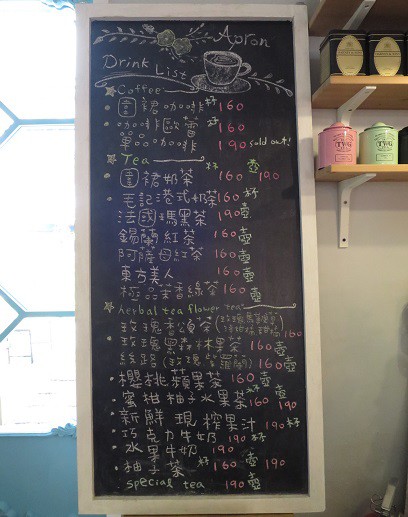 Apron
Drink List
Coffee
圍裙咖啡 杯 160
咖啡歐蕾 杯 160
單品咖啡 190 sold out!
Tea
圍裙奶茶 杯 160 壺 190
毛記港式奶茶 160 杯
法國瑪黑茶 190 壺
錫蘭紅茶 160 壺
阿薩母紅茶 160 壺
東方美人 160 壺
極品茉香綠茶 160 壺
herbal tea flower tea
玫瑰香頌茶 160
玫瑰黑森林果茶 160 壺
絲路 (玫瑰紫羅蘭) 160 壺
櫻桃蘋果茶 160 壺
蜜柑柚子水果茶 杯 160 壺 190
新鮮現榨果汁 190 杯
巧克力牛奶 190 杯
水果牛奶 190
柚子茶 杯 160 壺 190
special tea 190 壺
TWG
TWG